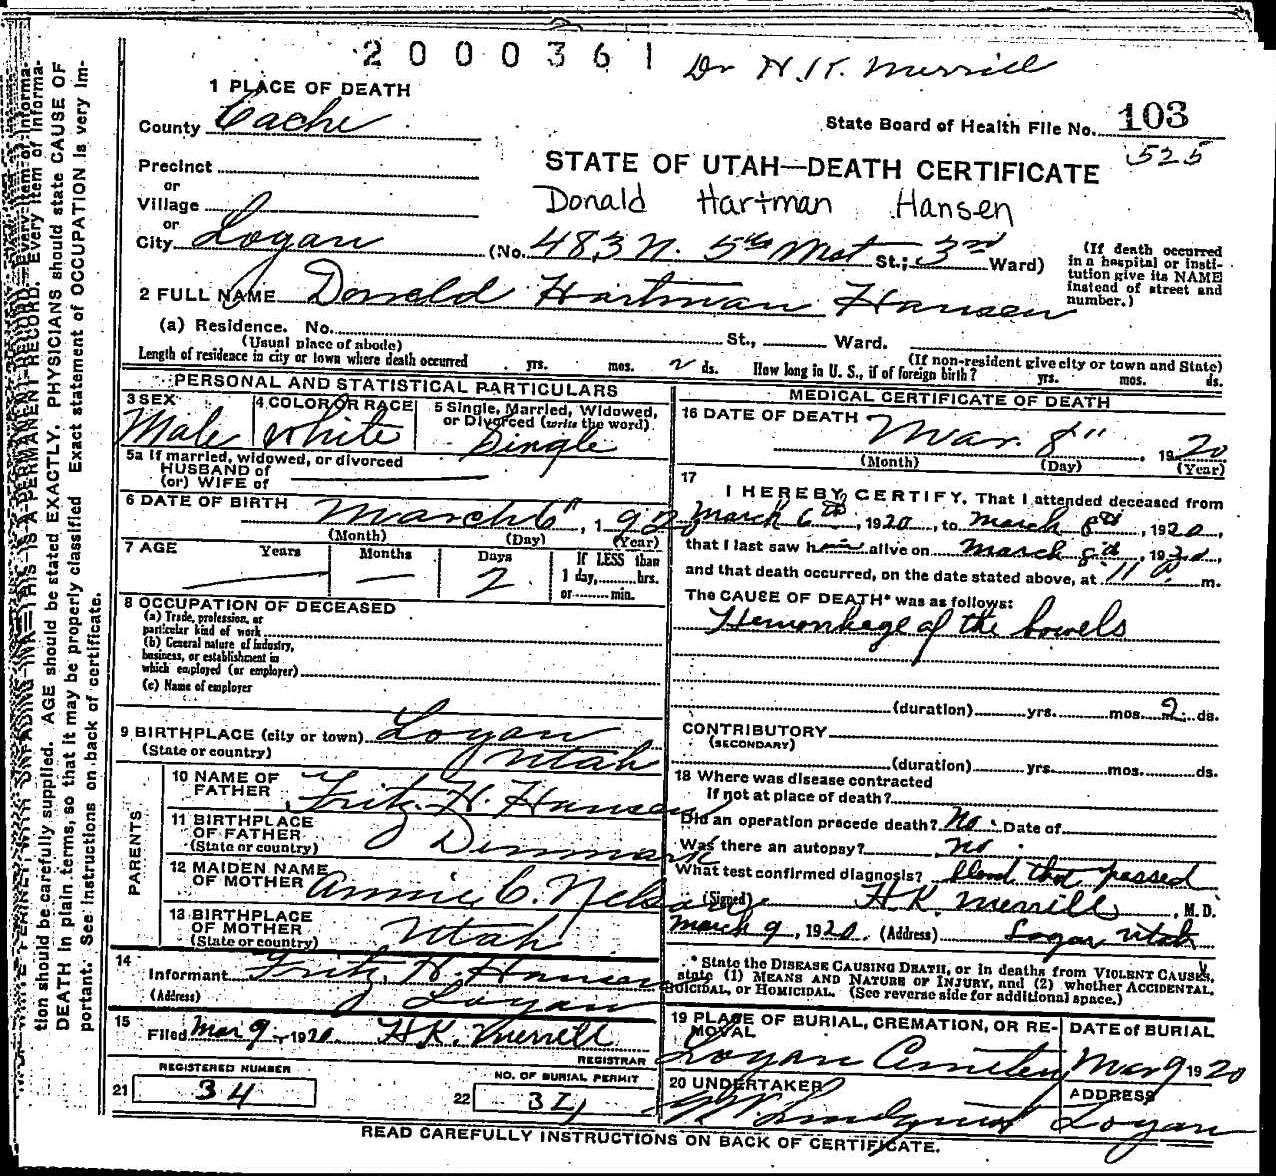 2000361 Dr H.K. Merrill
1 PLACE OF DEATH
County Cache
State Board of Health File No. 103
525
Precinct
or
Village
or
City Logan
STATE OF UTAH—DEATH CERTIFICATE
Donald Hartman Hansen
(No. 483 N. 5th West St.; 3rd Ward)
(If death occurred
in a hospital or insti-
tution give its NAME
instead of street and
number.)
2 FULL NAME Donald Hartman Hansen
(a) Residence. No. St., Ward.
(Usual place of abode) (If non-resident give city or town and State)
Length of residence in city or town where death occurred yrs. mos. 2 ds. How long in U. S., if of foreign birth? yrs. mos. ds.
PERSONAL AND STATISTICAL PARTICULARS
3 SEX
Male
4 COLOR OR RACE
White
5 Single, Married, Widowed,
or Divorced (write the word)
Single
5a If married, widowed, or divorced
HUSBAND of
(or) WIFE of
6 DATE OF BIRTH March 6", 1920
(Month) (Day) (Year)
7 AGE Years Months Days If LESS than
— — 2 1 day, hrs.
or min.
8 OCCUPATION OF DECEASED
(a) Trade, profession, or
particular kind of work
(b) General nature of industry,
business, or establishment in
which employed (or employer)
(c) Name of employer
9 BIRTHPLACE (city or town) Logan
(State or country) Utah
PARENTS
10 NAME OF
FATHER Fritz H. Hansen
11 BIRTHPLACE
OF FATHER
(State or country) Denmark
12 MAIDEN NAME
OF MOTHER Annie C. Nelson
13 BIRTHPLACE
OF MOTHER
(State or country) Utah
14
Informant Fritz H. Hansen
(Address) Logan
15
Filed Mar 9, 1920 H.K. Merrill
REGISTRAR
REGISTERED NUMBER
21 34
NO. OF BURIAL PERMIT
22 34
MEDICAL CERTIFICATE OF DEATH
16 DATE OF DEATH Mar. 8" 1920
(Month) (Day) (Year)
17
I HEREBY CERTIFY, That I attended deceased from
March 6th, 1920, to March 8th, 1920,
that I last saw him alive on March 8th, 1920,
and that death occurred, on the date stated above, at 11 a m.
The CAUSE OF DEATH* was as follows:
Hemorrhage of the bowels
(duration) yrs. mos. 2 ds.
CONTRIBUTORY
(SECONDARY)
(duration) yrs. mos. ds.
18 Where was disease contracted
if not at place of death?
Did an operation precede death? No. Date of
Was there an autopsy? no.
What test confirmed diagnosis? blood that passed
(Signed) H.K. Merrill, M.D.
March 9, 1920. (Address) Logan Utah
* State the DISEASE CAUSING DEATH, or in deaths from VIOLENT CAUSES,
state (1) MEANS AND NATURE OF INJURY, and (2) whether ACCIDENTAL,
SUICIDAL, or HOMICIDAL. (See reverse side for additional space.)
19 PLACE OF BURIAL, CREMATION, OR RE-
MOVAL
Logan Cemetery
DATE of BURIAL
Mar 9 1920
20 UNDERTAKER
Lindquist
ADDRESS
Logan
READ CAREFULLY INSTRUCTIONS ON BACK OF CERTIFICATE.
THIS IS A PERMANENT RECORD. Every item of informa-
tion should be carefully supplied. AGE should be stated EXACTLY. PHYSICIANS should state CAUSE OF
DEATH in plain terms, so that it may be properly classified. Exact statement of OCCUPATION is very im-
portant. See instructions on back of certificate.